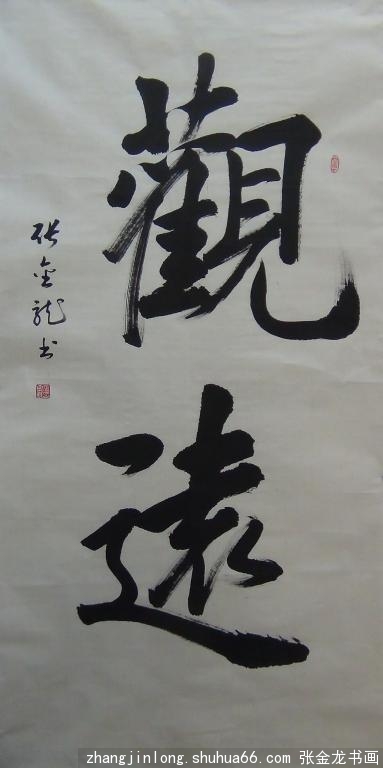 觀遠
张金龍书
zhangjinlong.shuhua66.com 张金龙书画